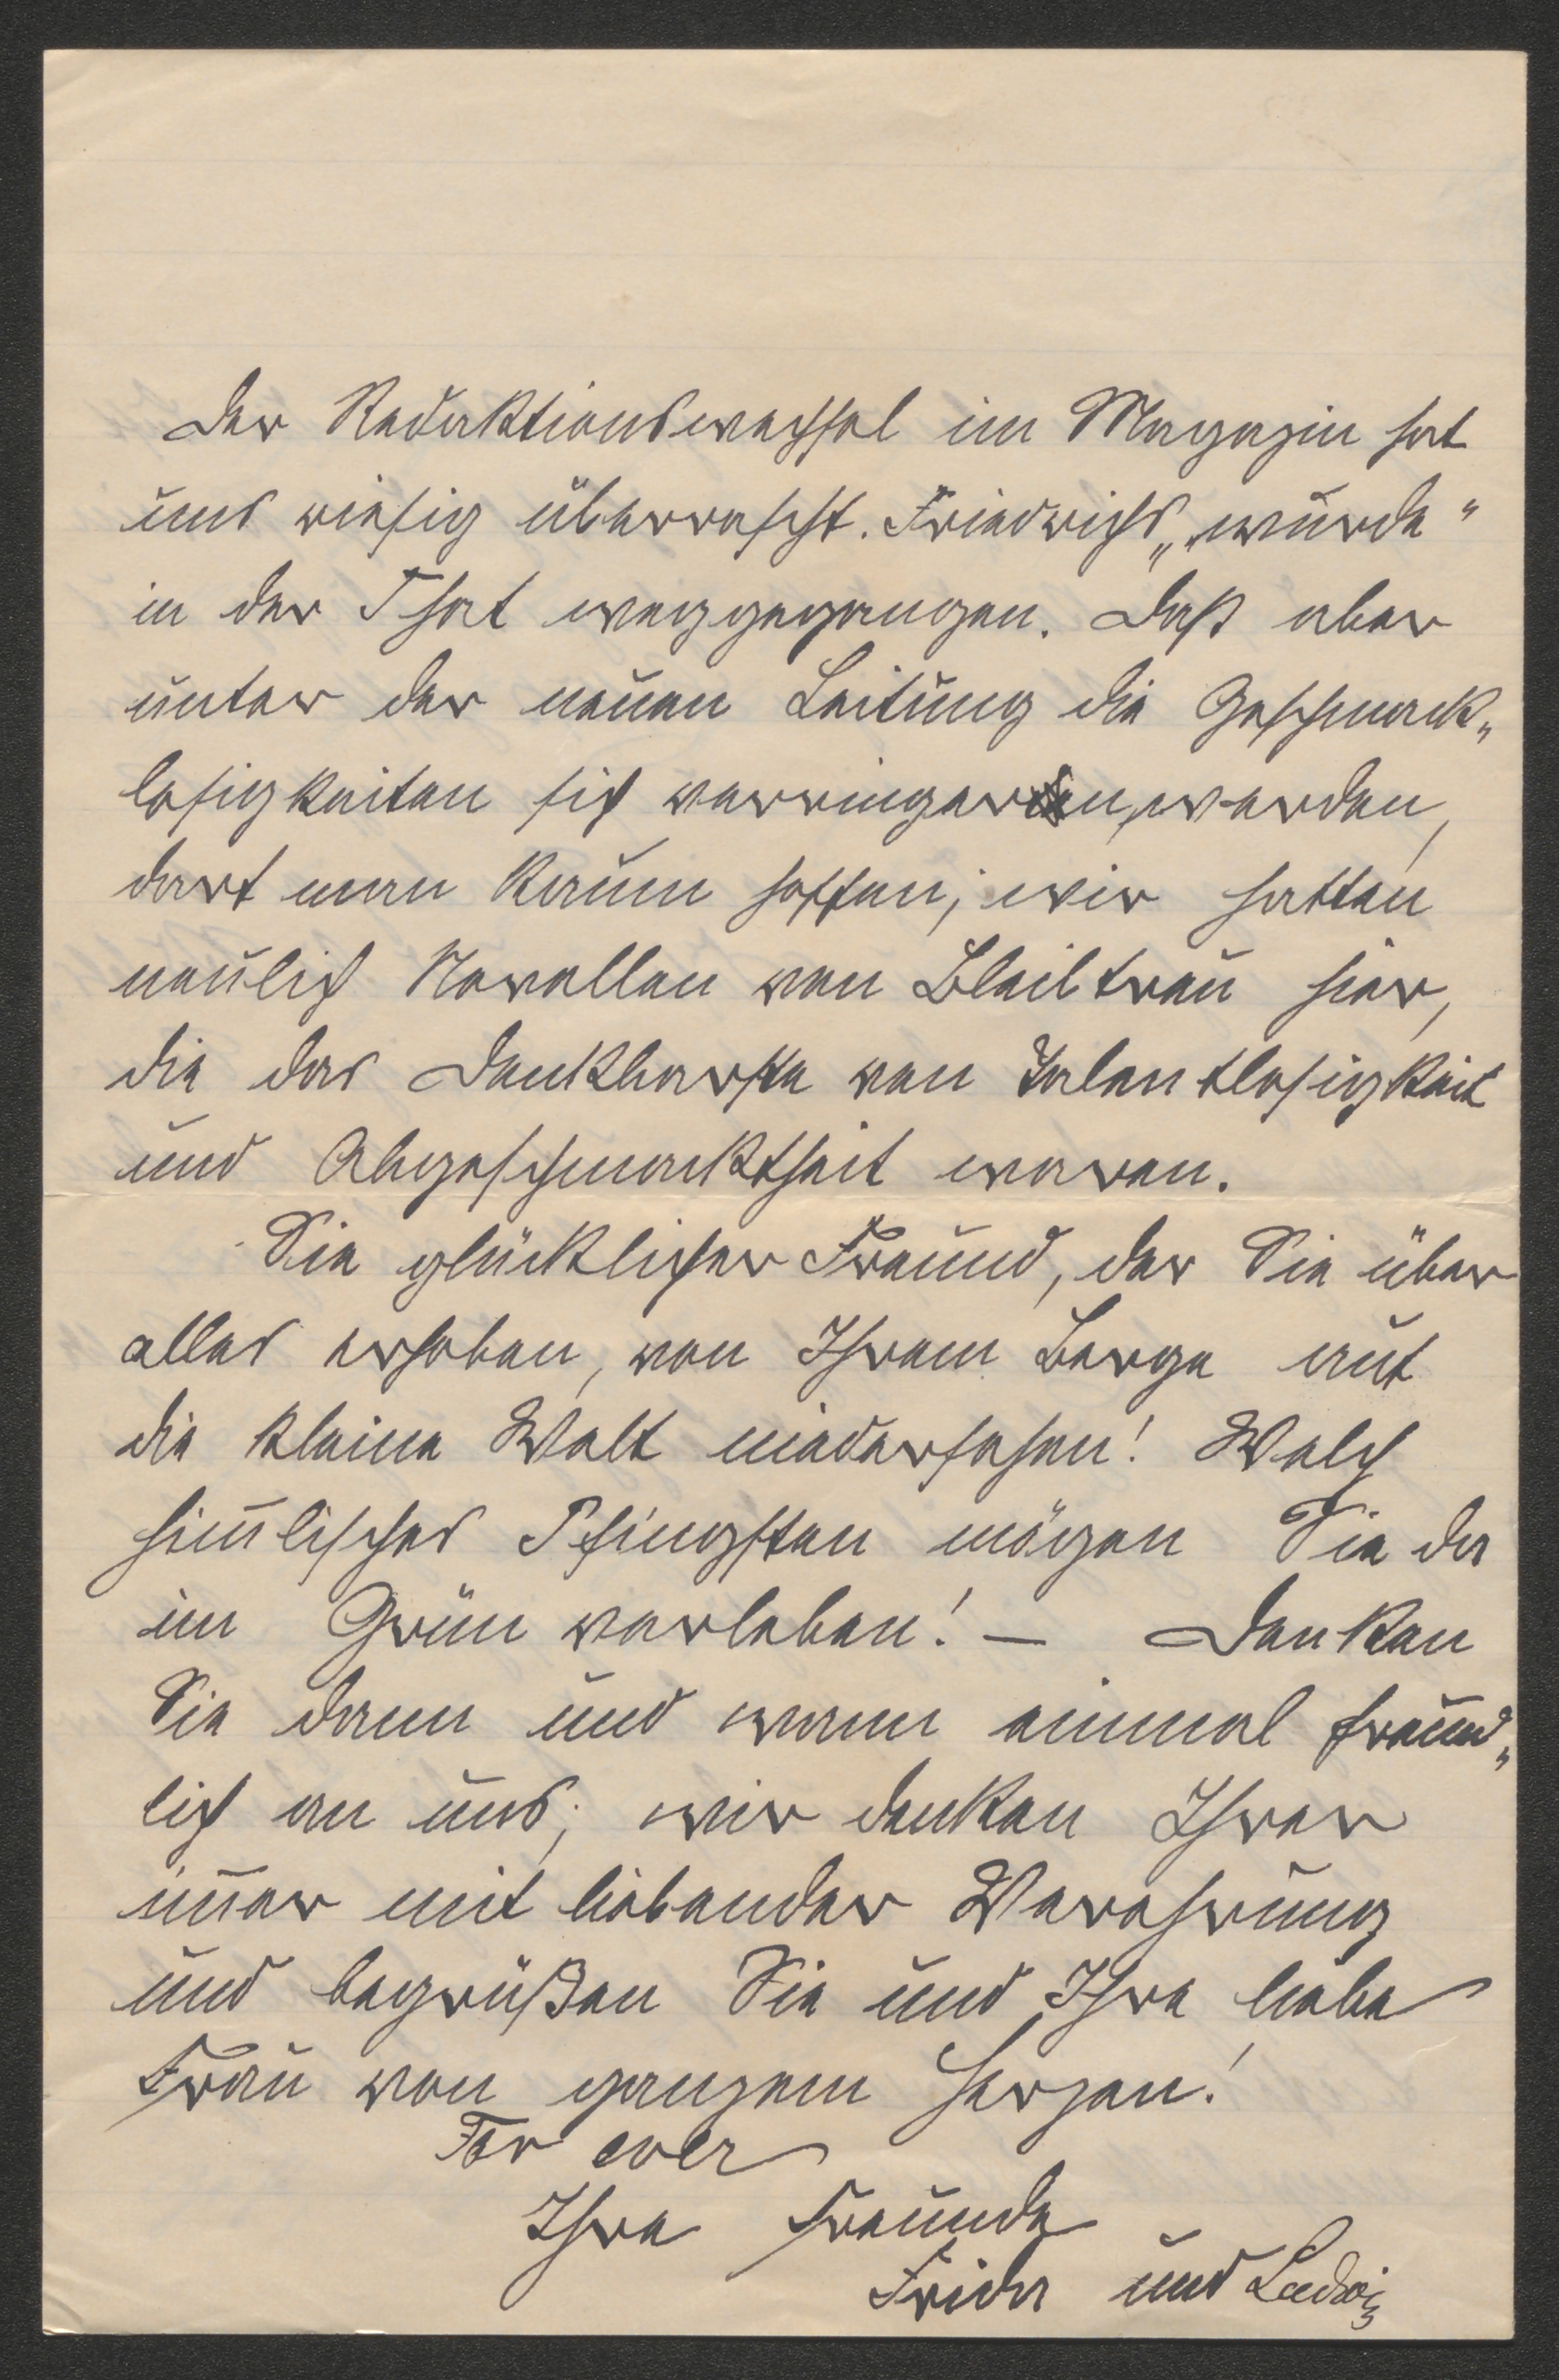 Der Redaktionswechsel im Magazin hat
uns riesig überrascht. Friedrichs „wurde“
in der That weggegangen. Daß aber
unter der neuen Leitung die Geschmack„
losigkeiten sich verringern werden,
darf man kaum hoffen; wir hatten
neulich Novellen von Bleibtreu hier,
die das Denkbarste von Talentlosigkeit
und Abgeschmacktheit waren.
Sie glücklicher Freund, der Sie über
alles erhaben, von Ihrem Berge auf
die kleine Welt niedersehen! Welch
him̅lisches Pfingsten mögen Sie da
im Grün verleben! – Denken
Sie dann und wann einmal freund„
lich an uns; wir denken Ihrer
im̅er mit liebender Verehrung
und begrüßen Sie und Ihre liebe
Frau von ganzem Herzen!
For ever
Ihre Freunde
Frida und Ludwig